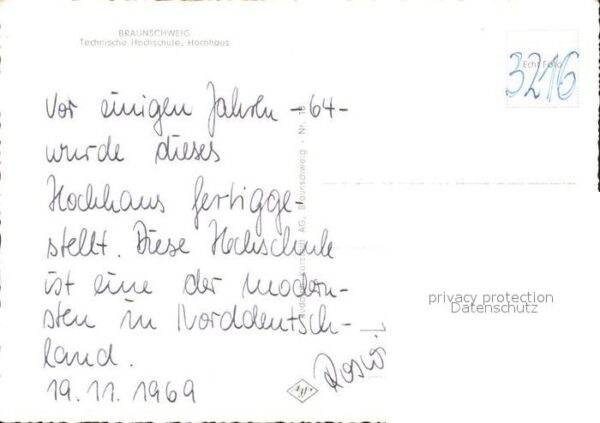 BRAUNSCHWEIG
Technische Hochschule, Hochhaus
Echt Foto
3216
Vor einigen Jahren -64-
wurde dieses
Hochhaus fertigge-
stellt. Diese Hochschule
ist eine der modern-
sten in Norddeutsch-
land.
19.11.1969
AG, Braunschweig - Nr. 18
privacy protection
Datenschutz